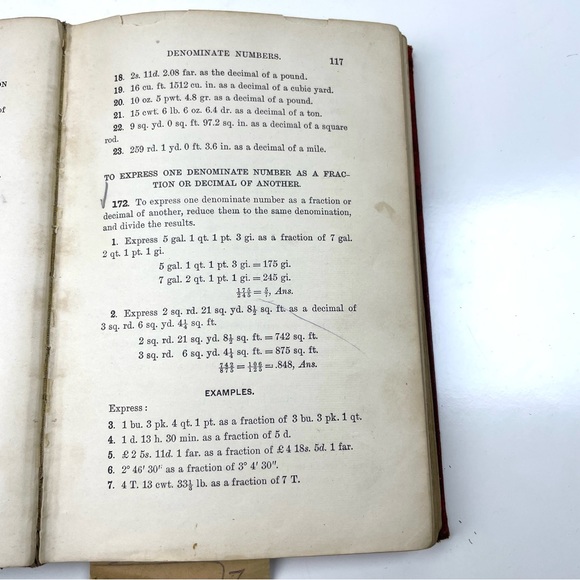 DENOMINATE NUMBERS. 117
18. 2s. 11d. 2.08 far. as the decimal of a pound.
19. 16 cu. ft. 1512 cu. in. as a decimal of a cubic yard.
20. 10 oz. 5 pwt. 4.8 gr. as a decimal of a pound.
21. 15 cwt. 6 lb. 6 oz. 6.4 dr. as a decimal of a ton.
22. 9 sq. yd. 0 sq. ft. 97.2 sq. in. as a decimal of a square
rod.
23. 259 rd. 1 yd. 0 ft. 3.6 in. as a decimal of a mile.
TO EXPRESS ONE DENOMINATE NUMBER AS A FRAC-
TION OR DECIMAL OF ANOTHER.
172. To express one denominate number as a fraction or
decimal of another, reduce them to the same denomination,
and divide the results.
1. Express 5 gal. 1 qt. 1 pt. 3 gi. as a fraction of 7 gal.
2 qt. 1 pt. 1 gi.
5 gal. 1 qt. 1 pt. 3 gi. = 175 gi.
7 gal. 2 qt. 1 pt. 1 gi. = 245 gi.
175/245 = 5/7, Ans.
2. Express 2 sq. rd. 21 sq. yd. 8½ sq. ft. as a decimal of
3 sq. rd. 6 sq. yd. 4¼ sq. ft.
2 sq. rd. 21 sq. yd. 8½ sq. ft. = 742 sq. ft.
3 sq. rd. 6 sq. yd. 4¼ sq. ft. = 875 sq. ft.
742/875 = 106/125 = .848, Ans.
EXAMPLES.
Express:
3. 1 bu. 3 pk. 4 qt. 1 pt. as a fraction of 3 bu. 3 pk. 1 qt.
4. 1 d. 13 h. 30 min. as a fraction of 5 d.
5. £2 5s. 11d. 1 far. as a fraction of £4 18s. 5d. 1 far.
6. 2° 46′ 30″ as a fraction of 3° 4′ 30″.
7. 4 T. 13 cwt. 33⅓ lb. as a fraction of 7 T.